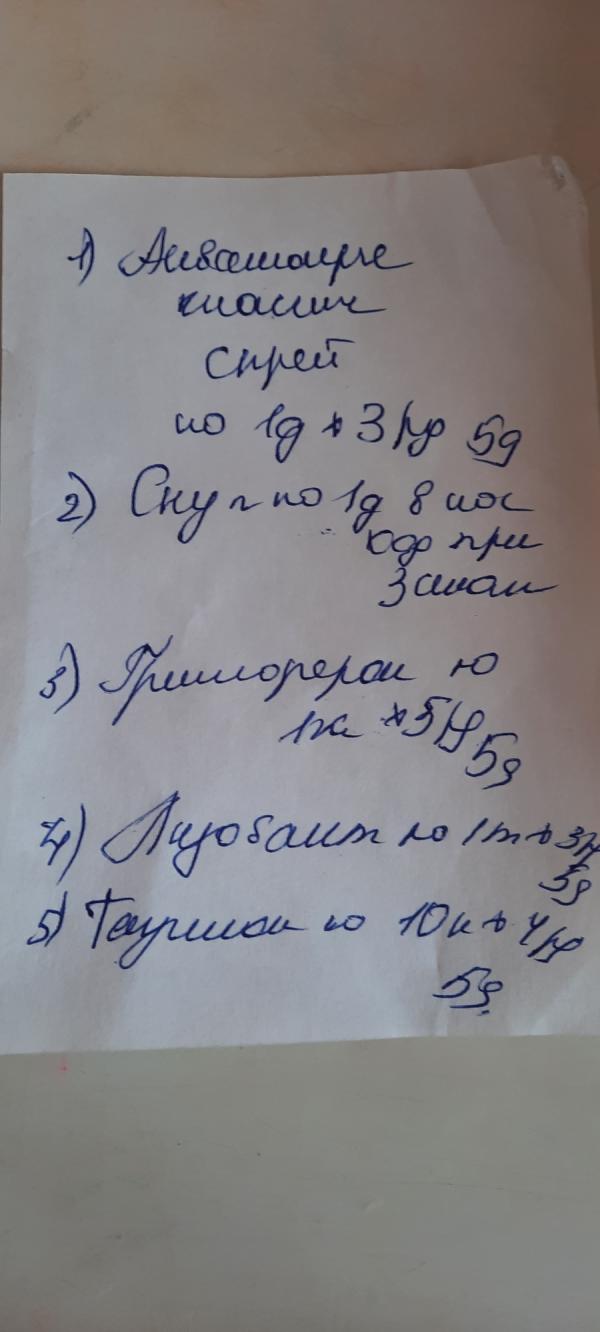 1) Аквамарис
классич
спрей
по 1д * 3 р/д 5д
2) Снуп по 1д в нос
при
3)
1к * 5 р/д
5д
4) Лизобакт по 1т * 3 р
5д
5) по 10к * 4 р/д
5д.